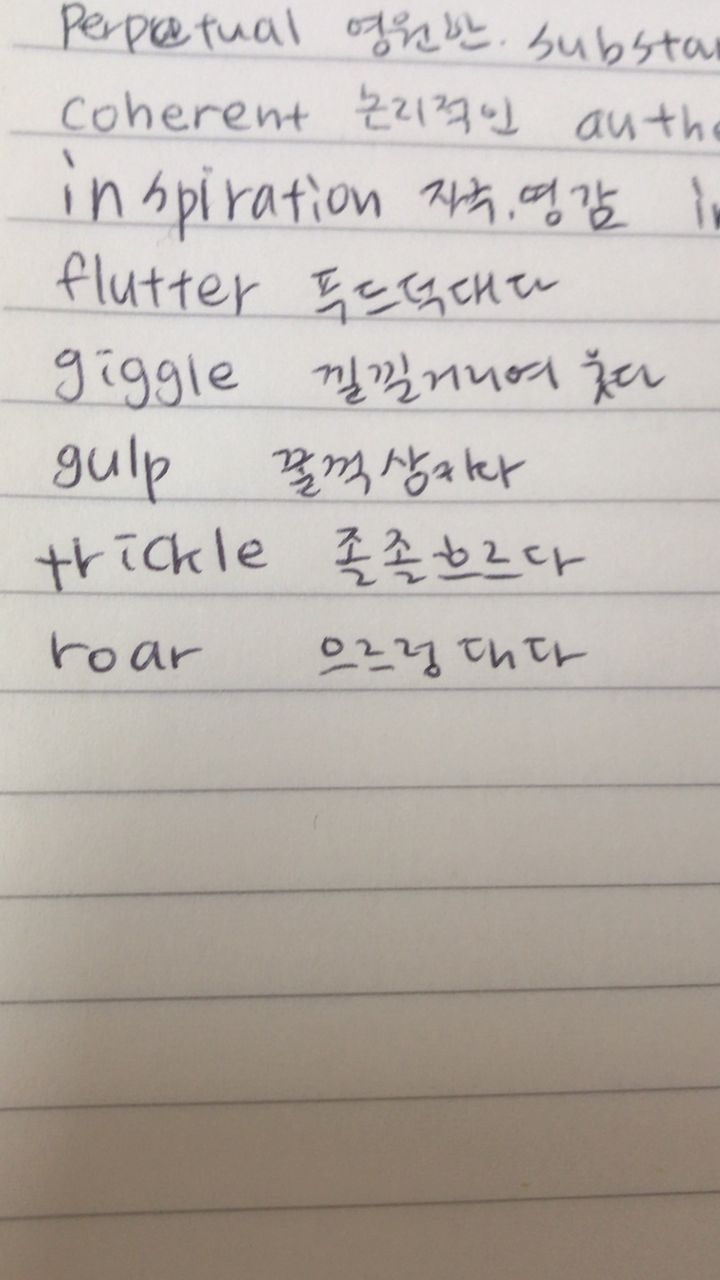 Perpetual 영원한. substan
coherent 논리적인 authe
inspiration 자극.영감 in
flutter 푸드덕대다
giggle 낄낄거리며 웃다
gulp 꿀꺽 삼키다
trickle 졸졸흐르다
roar 으르렁대다